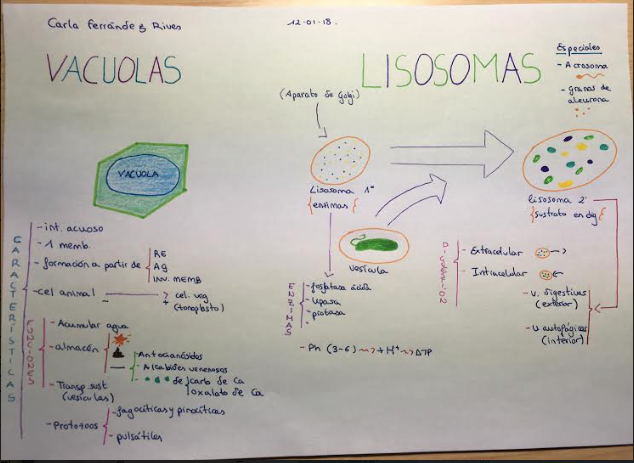 Carla Ferrández Rives
12-01-18.
VACUOLAS
LISOSOMAS
Especiales
- Acrosoma
- granos de
aleurona
(Aparato de Golgi)
VACUOLA
Lisosoma 1º
{enzimas}
Lisosoma 2º
{sustrato en dig}
vesícula
CARACTERÍSTICAS
- int. acuoso
- 1 memb.
- formación a partir de
RE
AG
INV. MEMB
- cel animal
-
> cel. veg
+ (tonoplasto)
FUNCIONES
- Acumular agua
- almacén
- Antocianósidos
- Alcaloides venenosos
- de carb de Ca
oxalato de Ca
- Transp. sust
(vesículas)
- Protozoos
- fagocíticas y pinocíticas
- pulsátiles
ENZIMAS
- fosfatasa ácida
- lipasa
- proteasa
- Ph (3-6) → + H⁺ → ATP
DIGESTIÓN
- Extracelular
- Intracelular
- v. digestivas
(exterior)
- v autofágicas
(interior)